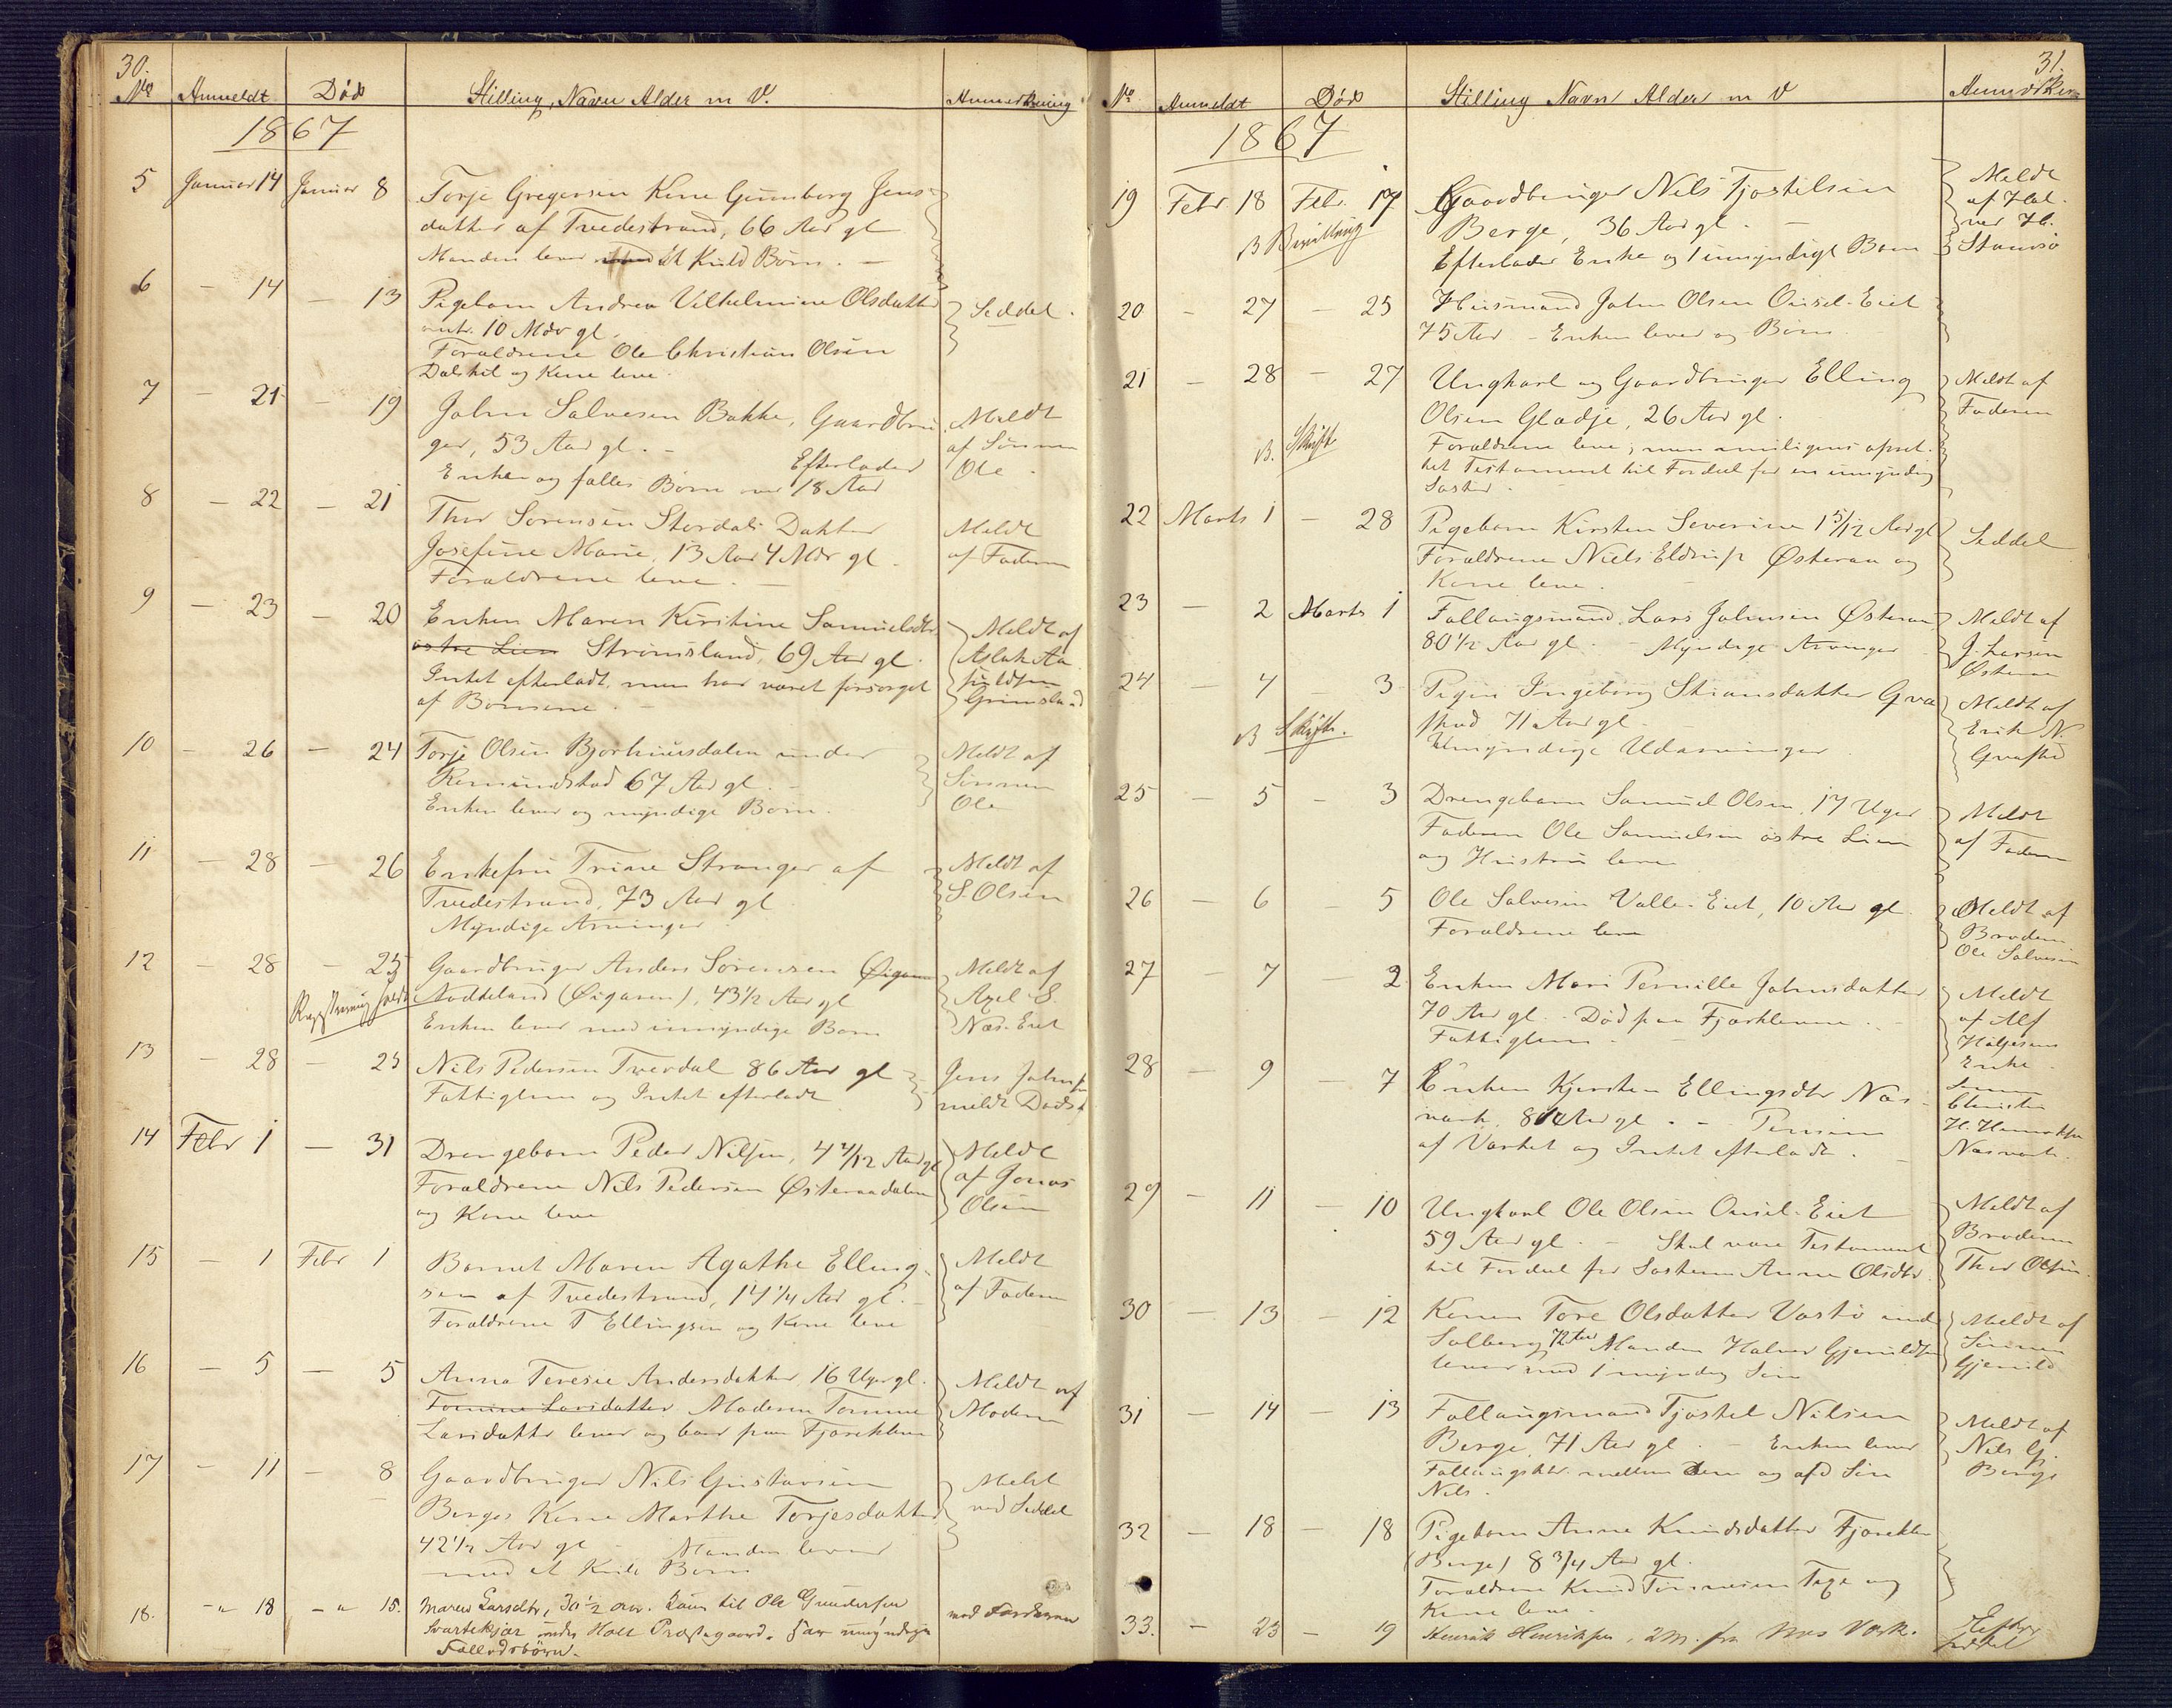 30.
No Anmeldt Død Stilling, Navn Alder m V. Anmerkning
1867
5 Januar 14 Januar 8 Torje Gregersen Kone Gunnborg Jens-
datter af Tvedestrand, 66 Aar gl
Manden lever Et Kuld Børn. —
6 — 14 — 13 Pigebarn Andrea Vilhelmine Olsdatter Seddel.
10 Mdr gl.
Forældrene Ole Christian Olsen
og Kone leve.
7 — 21 — 19 John Salvesen Bakke, Gaardbru- Meldt
ger, 53 Aar gl. — Efterlader af Sønnen
Enken og fælles Børn over 18 Aar Ole.
8 — 22 — 21 Thor Sorensen Stordals Datter Meldt
Josefine Marie, 13 Aar 4 Mdr gl. af Faderen
Forældrene leve. —
9 — 23 — 20 Enken Maren Kirstine Samuelsdtr Meldt af
østre Lien Strømsland, 69 Aar gl. Aslak Aa
Intet efterladt, men har været forsørget
af Børnene. — Grimsland
10 — 26 — 24 Torje Olsen Bjorhuusdalen under Meldt af
Remundstad 67 Aar gl. — Sønnen
Enken lever og myndige Børn. Ole
11 — 28 — 26 Enkefru Trine Stranger af Meldt af
Tvedestrand, 73 Aar gl S. Olsen
Myndige Arvinger
12 — 28 — 25 Gaardbruger Anders Sørensen Øigarn Meldt af
Registrering Nodeland (Øigaren), 43 1/2 Aar gl Axel S.
Enken lever med umyndige Børn Næs-Eiet
13 — 28 — 25 Nils Pedersen Tveedal 86 Aar gl Jens Johnsen
Fattiglem og Intet efterladt meldt Døds
14 Febr 1 — 31 Drengebarn Peder Nilsen, 4 Aar gl Meldt
Forældrene Nils Pedersen Østeraadalen af Jonas
og Kone leve Olsen
15 — 1 Febr 1 Barnet Maren Agathe Elling- Meldt
sen af Tvedestrand, 14 1/4 Aar gl. — af Faderen
Forældrene T Ellingsen og Kone leve
16 — 5 — 5 Anna Teresie Andersdatter, 16 Uger gl. Meldt af
Tomine Larsdatter Moderen Tomine Moderen
Larsdatter lever og boer paa Fjærekleven
17 — 11 — 8 Gaardbruger Nils Gustavsen Meldt
Berges Kone Marthe Torjesdatter ved Seddel
42 1/2 Aar gl — Manden lever
med et Kuld Børn
18. - " 18 - " 15. Maren Larsdtr, 30 1/2 aar. Kone til Ole Gundersen med
Svartekjær under Holt Præstegaard. har umyndige
Fællesbørn.
31.
No Anmeldt Død Stilling Navn Alder m V Anmerkn
1867
19 Febr 18 Febr. 17 Gaardbruger Nils Tjostelsen Meldt
B Bevilling Berge, 36 Aar gl. — af Hal-
Efterlader Enke og 1 umyndigt Barn vor H.
20 — 27 — 25 Huusmand John Olsen Ousel-Eiet
75 Aar — Enken lever og Børn
21 — 28 — 27 Ungkarl og Gaardbruger Elling Meldt af
Olsen Gladje, 26 Aar gl. Faderen
B. Skifte Forældrene leve; men muligens opret-
tet Testament til Fordeel for en umyndig
Søster.
22 Marts 1 — 28 Pigebarn Kirsten Severine 1 5/12 Aar gl Seddel
Forældrene Niels Eldrup Østeraa og
Kone leve.
23 — 2 Marts 1 Follaugsmand Lars Johnsen Østeraa Meldt af
80 1/2 Aar gl. — Myndige Arvinger J. Larsen
Østeraa
24 — 4 — 3 Pigen Ingeborg Stiansdatter Gva Meldt af
B Skifte. stad 71 Aar gl. Erik N.
Umyndige Udarvinger Gvastad
25 — 5 — 3 Drengebarn Samuel Olsen, 17 Uger Meldt
Faderen Ole Samuelsen østre Lien af Faderen
og Hustru leve
26 — 6 — 5 Ole Salvesen Valle-Eiet, 10 Aar gl. Meldt af
Forældrene leve Broderen
Ole Salvesen
27 — 7 — 2 Enken Mari Pernille Johnsdatter Meldt
70 Aar gl. — Død paa Fjærkleven. — af Alf
Fattiglem. Enke
28 — 9 — 7 Enken Kjersten Ellingsdtr Næs-
værk, Aar gl. — Pension Christen
af Værket og Intet efterladt. Næsværk.
29 — 11 — 10 Ungkarl Ole Olsen Ousel-Eiet Meldt af
59 Aar gl. — Skal være Testament Broderen
til Fordeel for Søsteren Anne Olsdtr. Thor Olsen.
30 — 13 — 12 Konen Tore Olsdatter Vastø und Meldt af
Solberg 72 Aar Manden Halvor Gjeruldsen Sønnen
lever med 1 myndig Søn Gjeruld
31 — 14 — 13 Follaugsmand Tjøstel Nilsen Meldt af
Berge, 71 Aar gl. — Enken lever Nils Gj.
Follaugsktr. mellem dem og afd Søn Berge
Nils.
32 — 18 — 18 Pigebarn Anne Knudsdatter Fjærekleven
(Berge) 8 3/4 Aar gl.
Forældrene Knud Tønnesen og
Kone leve.
33. — 23 — 19 Henrik Henriksen, 2 M. fra Næs Værk. Efter
Seddel